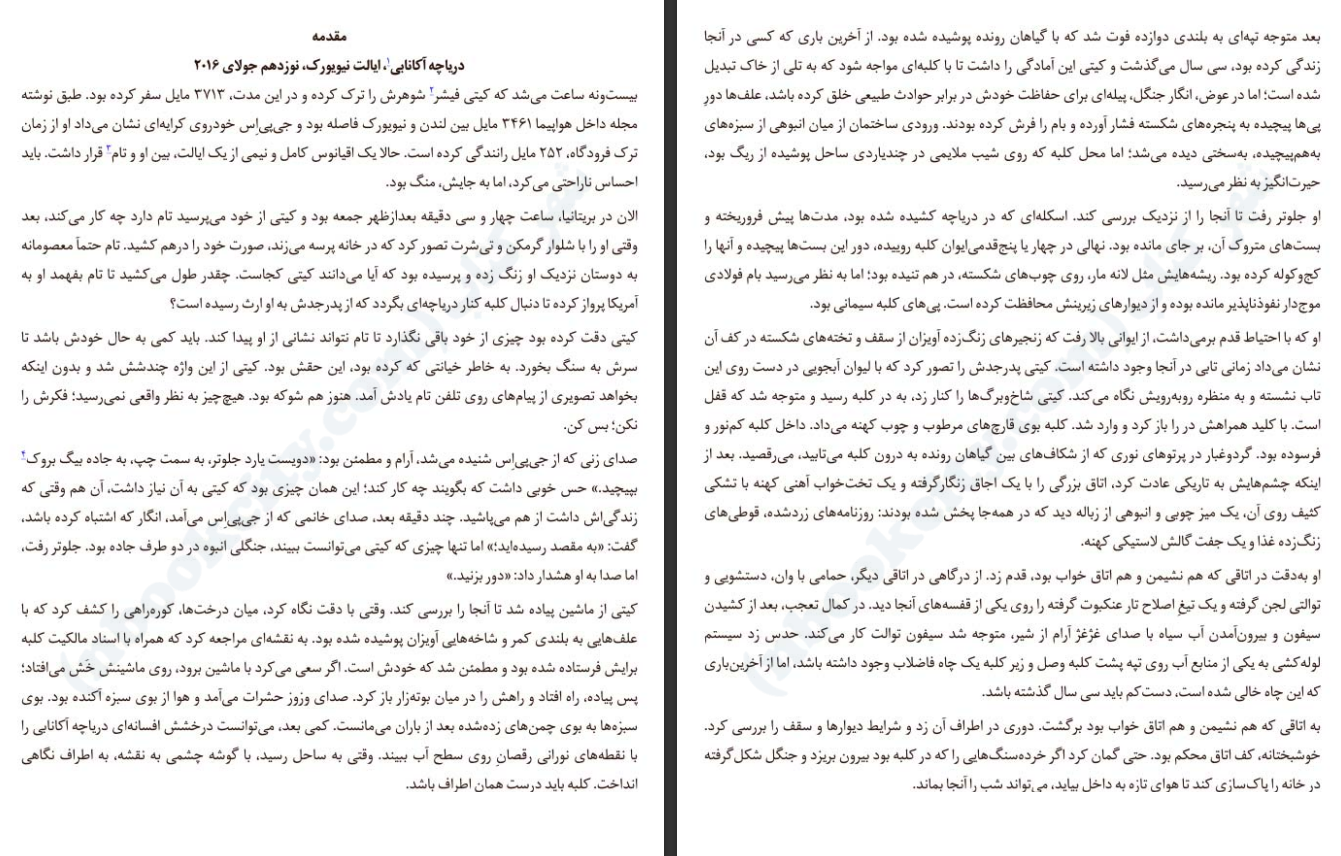 مقدمه
دریاچه آکانابی۱، ایالت نیویورک، نوزدهم جولای ۲۰۱۶
بیست‌ونه ساعت می‌شد که کیتی فیشر۲ شوهرش را ترک کرده و در این مدت، ۳۷۱۳ مایل سفر کرده بود. طبق نوشته
مجله داخل هواپیما ۳۴۶۱ مایل بین لندن و نیویورک فاصله بود و جی‌پی‌اِس خودروی کرایه‌ای نشان می‌داد او از زمان
ترک فرودگاه، ۲۵۲ مایل رانندگی کرده است. حالا یک اقیانوس کامل و نیمی از یک ایالت، بین او و تام۳ قرار داشت. باید
احساس ناراحتی می‌کرد، اما به جایش، منگ بود.
الان در بریتانیا، ساعت چهار و سی دقیقه بعدازظهر جمعه بود و کیتی از خود می‌پرسید تام دارد چه کار می‌کند، بعد
وقتی او را با شلوار گرمکن و تی‌شرت تصور کرد که در خانه پرسه می‌زند، صورت خود را درهم کشید. تام حتماً معصومانه
به دوستان نزدیک او زنگ زده و پرسیده بود که آیا می‌دانند کیتی کجاست. چقدر طول می‌کشید تا تام بفهمد او به
آمریکا پرواز کرده تا دنبال کلبه کنار دریاچه‌ای بگردد که از پدرجدش به او ارث رسیده است؟
کیتی دقت کرده بود چیزی از خود باقی نگذارد تا تام نتواند نشانی از او پیدا کند. باید کمی به حال خودش باشد تا
سرش به سنگ بخورد. به خاطر خیانتی که کرده بود، این حقش بود. کیتی از این واژه چندشش شد و بدون اینکه
بخواهد تصویری از پیام‌های روی تلفن تام یادش آمد. هنوز هم شوکه بود. هیچ‌چیز به نظر واقعی نمی‌رسید؛ فکرش را
نکن؛ بس کن.
صدای زنی که از جی‌پی‌اِس شنیده می‌شد، آرام و مطمئن بود: «دویست یارد جلوتر، به سمت چپ، به جاده بیگ بروک۴
بپیچید.» حس خوبی داشت که بگویند چه کار کند؛ این همان چیزی بود که کیتی به آن نیاز داشت، آن هم وقتی که
زندگی‌اش داشت از هم می‌پاشید. چند دقیقه بعد، صدای خانمی که از جی‌پی‌اِس می‌آمد، انگار که اشتباه کرده باشد،
گفت: «به مقصد رسیده‌اید؛» اما تنها چیزی که کیتی می‌توانست ببیند، جنگلی انبوه در دو طرف جاده بود. جلوتر رفت،
اما صدا به او هشدار داد: «دور بزنید.»
کیتی از ماشین پیاده شد تا آنجا را بررسی کند. وقتی با دقت نگاه کرد، میان درخت‌ها، کوره‌راهی را کشف کرد که با
علف‌هایی به بلندی کمر و شاخه‌هایی آویزان پوشیده شده بود. به نقشه‌ای مراجعه کرد که همراه با اسناد مالکیت کلبه
برایش فرستاده شده بود و مطمئن شد که خودش است. اگر سعی می‌کرد با ماشین برود، روی ماشینش خَش می‌افتاد؛
پس پیاده، راه افتاد و راهش را در میان بوته‌زار باز کرد. صدای وزوز حشرات می‌آمد و هوا از بوی سبزه آکنده بود. بوی
سبزه‌ها به بوی چمن‌های زده‌شده بعد از باران می‌مانست. کمی بعد، می‌توانست درخشش افسانه‌ای دریاچه آکانابی را
با نقطه‌های نورانی رقصانِ روی سطح آب ببیند. وقتی به ساحل رسید، با گوشه چشمی به نقشه، به اطراف نگاهی
انداخت. کلبه باید درست همان اطراف باشد.
بعد متوجه تپه‌ای به بلندی دوازده فوت شد که با گیاهان رونده پوشیده شده بود. از آخرین باری که کسی در آنجا
زندگی کرده بود، سی سال می‌گذشت و کیتی این آمادگی را داشت تا با کلبه‌ای مواجه شود که به تلی از خاک تبدیل
شده است؛ اما در عوض، انگار جنگل، پیله‌ای برای حفاظت خودش در برابر حوادث طبیعی خلق کرده باشد، علف‌ها دورِ
پی‌ها پیچیده به پنجره‌های شکسته فشار آورده و بام را فرش کرده بودند. ورودی ساختمان از میان انبوهی از سبزه‌های
به‌هم‌پیچیده، به‌سختی دیده می‌شد؛ اما محل کلبه که روی شیب ملایمی در چندیاردی ساحل پوشیده از ریگ بود،
حیرت‌انگیز به نظر می‌رسید.
او جلوتر رفت تا آنجا را از نزدیک بررسی کند. اسکله‌ای که در دریاچه کشیده شده بود، مدت‌ها پیش فروریخته و
بست‌های متروک آن، بر جای مانده بود. نهالی در چهار یا پنج‌قدمی‌ایوان کلبه روییده، دور این بست‌ها پیچیده و آنها را
کج‌وکوله کرده بود. ریشه‌هایش مثل لانه مار، روی چوب‌های شکسته، در هم تنیده بود؛ اما به نظر می‌رسید بام فولادی
موج‌دار نفوذناپذیر مانده بوده و از دیوارهای زیرینش محافظت کرده است. پی‌های کلبه سیمانی بود.
او که با احتیاط قدم برمی‌داشت، از ایوانی بالا رفت که زنجیرهای زنگ‌زده آویزان از سقف و تخته‌های شکسته در کف آن
نشان می‌داد زمانی تابی در آنجا وجود داشته است. کیتی پدرجدش را تصور کرد که با لیوان آبجویی در دست روی این
تاب نشسته و به منظره روبه‌رویش نگاه می‌کند. کیتی شاخ‌وبرگ‌ها را کنار زد، به در کلبه رسید و متوجه شد که قفل
است. با کلید همراهش در را باز کرد و وارد شد. کلبه بوی قارچ‌های مرطوب و چوب کهنه می‌داد. داخل کلبه کم‌نور و
فرسوده بود. گردوغبار در پرتوهای نوری که از شکاف‌های بین گیاهان رونده به درون کلبه می‌تابید، می‌رقصید. بعد از
اینکه چشم‌هایش به تاریکی عادت کرد، اتاق بزرگی را با یک اجاق زنگارگرفته و یک تخت‌خواب آهنی کهنه با تشکی
کثیف روی آن، یک میز چوبی و انبوهی از زباله دید که در همه‌جا پخش شده بودند: روزنامه‌های زردشده، قوطی‌های
زنگ‌زده غذا و یک جفت گالش لاستیکی کهنه.
او به‌دقت در اتاقی که هم نشیمن و هم اتاق خواب بود، قدم زد. از درگاهی در اتاقی دیگر، حمامی با وان، دستشویی و
توالتی لجن گرفته و یک تیغِ اصلاح تار عنکبوت گرفته را روی یکی از قفسه‌های آنجا دید. در کمال تعجب، بعد از کشیدن
سیفون و بیرون‌آمدن آب سیاه با صدای غژغژ آرام از شیر، متوجه شد سیفون توالت کار می‌کند. حدس زد سیستم
لوله‌کشی به یکی از منابع آب روی تپه پشت کلبه وصل و زیر کلبه یک چاه فاضلاب وجود داشته باشد، اما از آخرین‌باری
که این چاه خالی شده است، دست‌کم باید سی سال گذشته باشد.
به اتاقی که هم نشیمن و هم اتاق خواب بود برگشت. دوری در اطراف آن زد و شرایط دیوارها و سقف را بررسی کرد.
خوشبختانه، کف اتاق محکم بود. حتی گمان کرد اگر خرده‌سنگ‌هایی را که در کلبه بود بیرون بریزد و جنگل شکل‌گرفته
در خانه را پاک‌سازی کند تا هوای تازه به داخل بیاید، می‌تواند شب را آنجا بماند.